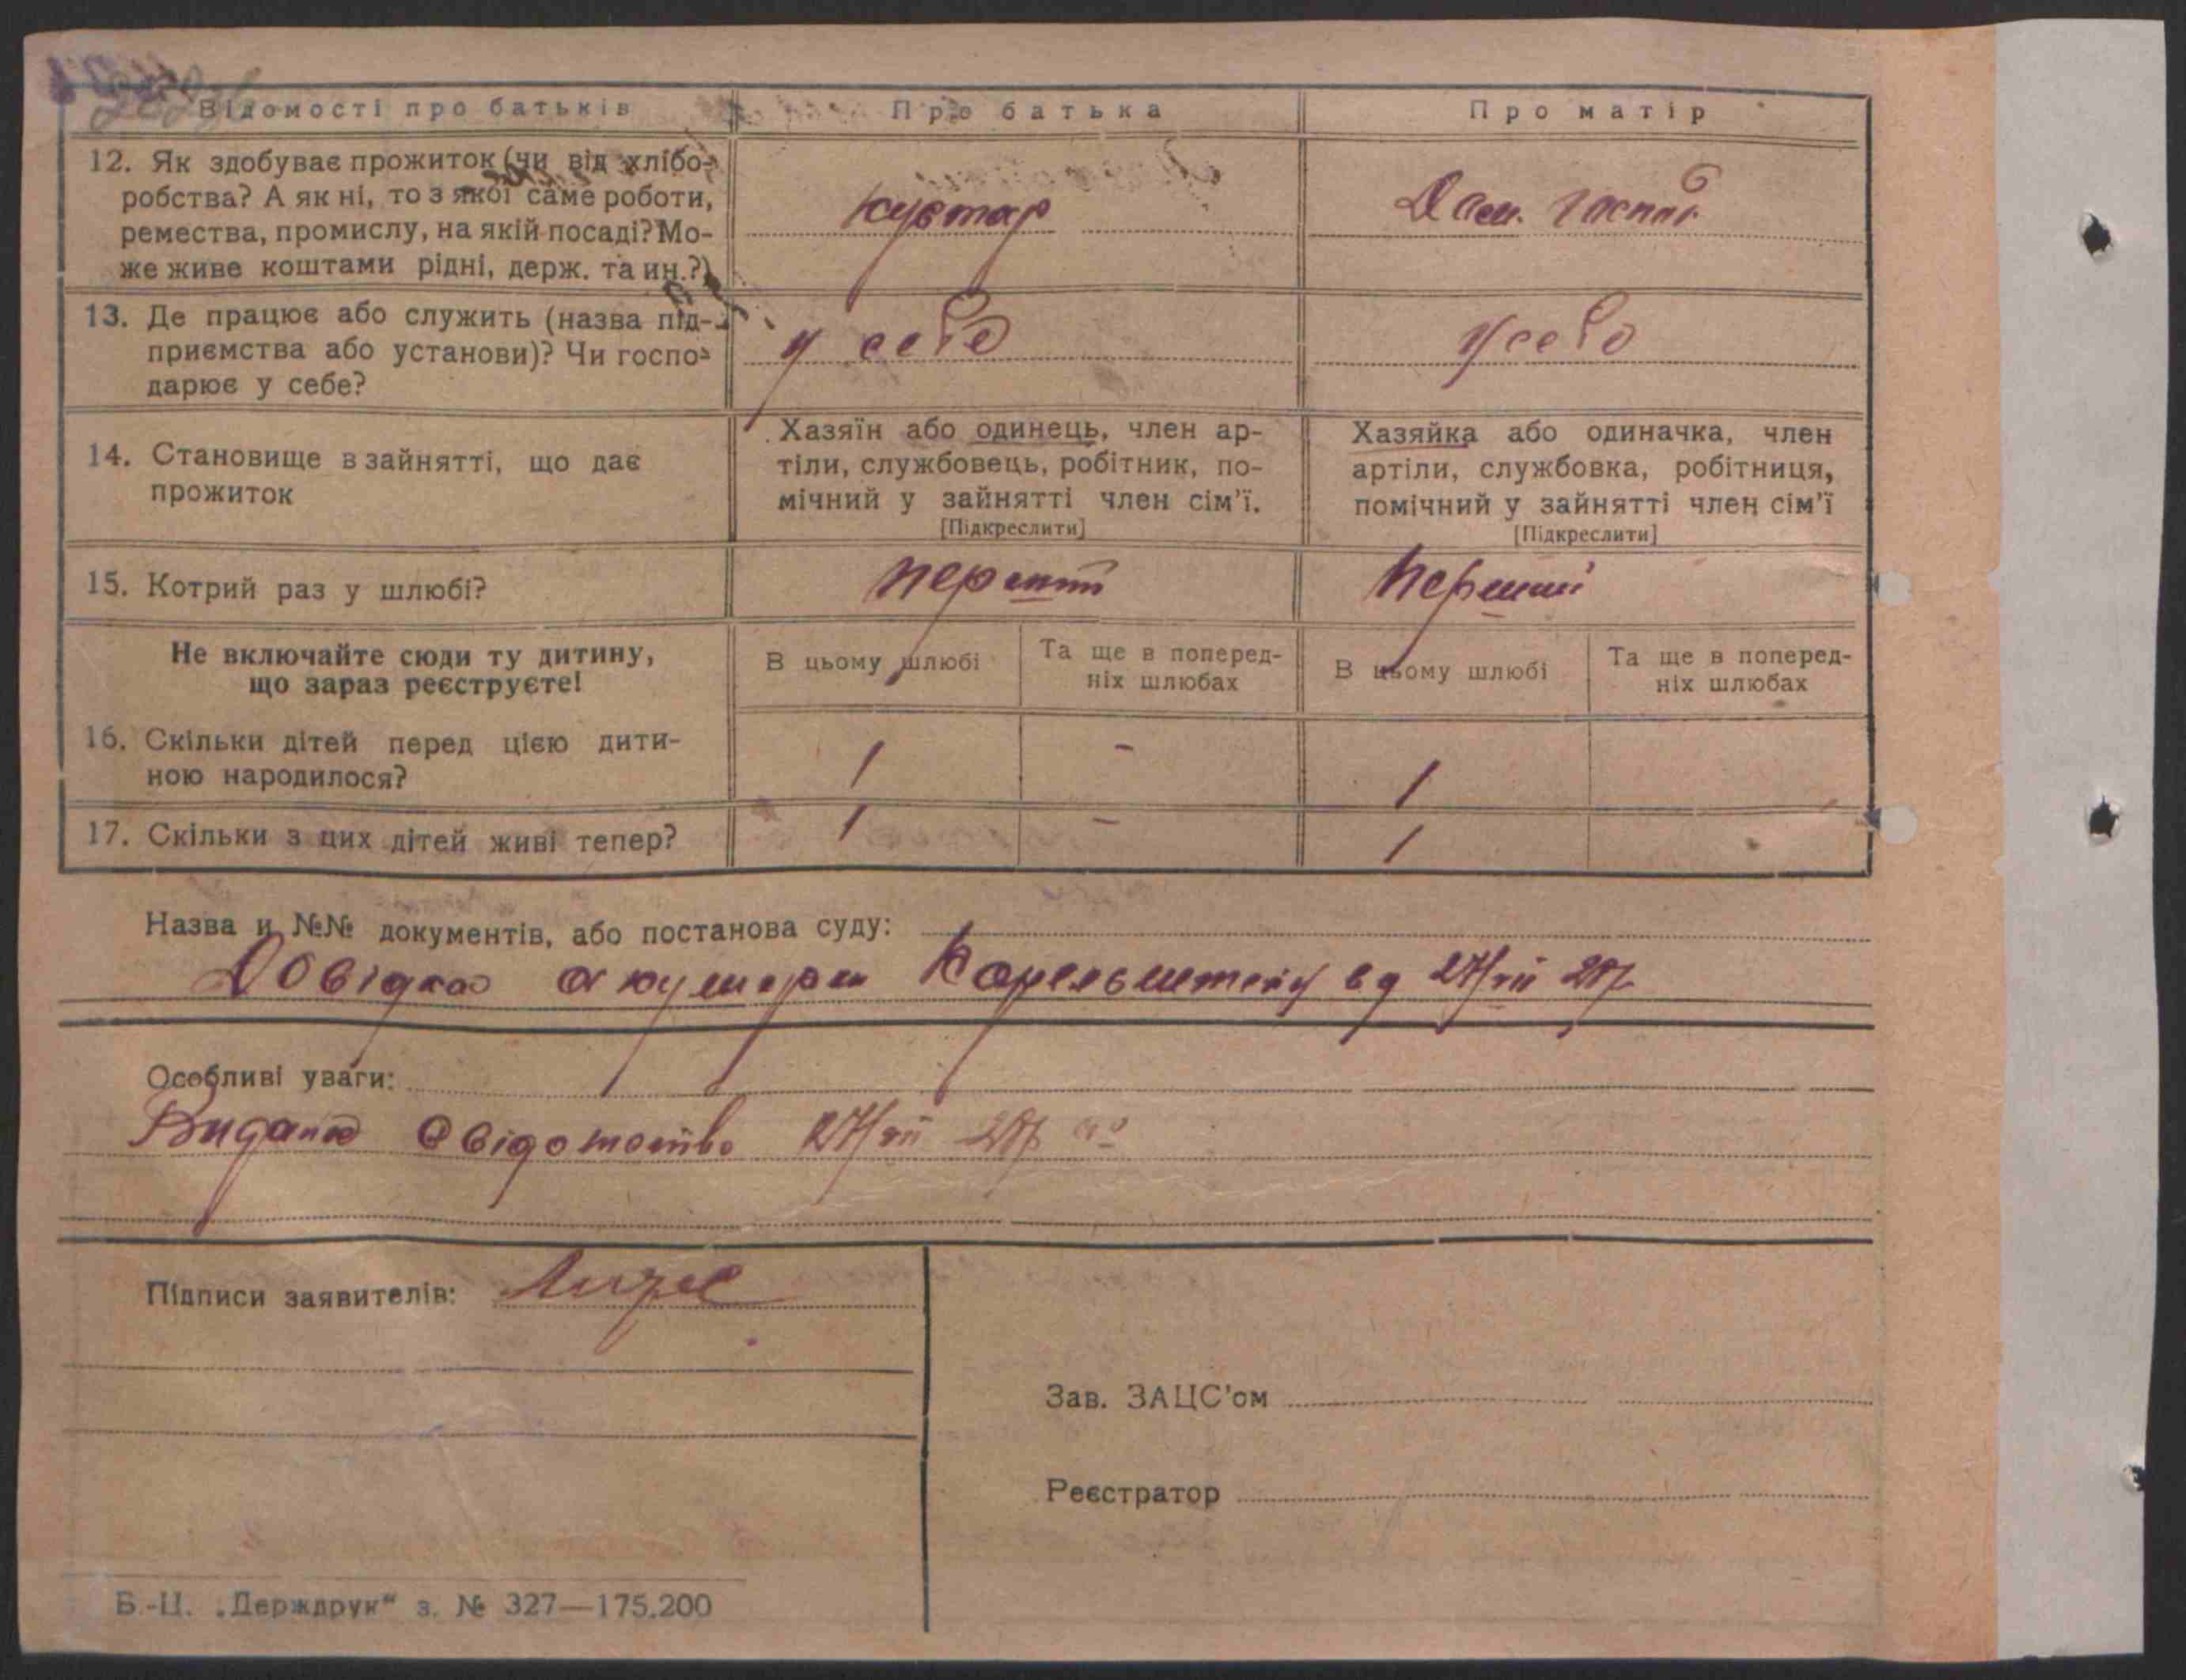 Відомості про батьків
Про батька
Про матір
12. Як здобуває прожиток (чи від хлібо-
робства? А як ні, то з якої саме роботи,
ремества, промислу, на якій посаді? Мо-
же живе коштами рідні, держ. та ин.?)
кустар
Дом. господ
13. Де працює або служить (назва під-
приємства або установи)? Чи госпо-
дарює у себе?
у себе
у себе
14. Становище в зайнятті, що дає
прожиток
Хазяїн або одинець, член ар-
тіли, службовець, робітник, по-
мічний у зайнятті член сім'ї.
[Підкреслити]
Хазяйка або одиначка, член
артіли, службовка, робітниця,
помічний у зайнятті член сім'ї
[Підкреслити]
15. Котрий раз у шлюбі?
перший
перший
Не включайте сюди ту дитину,
що зараз реєструєте!
В цьому шлюбі
Та ще в поперед-
ніх шлюбах
В цьому шлюбі
Та ще в поперед-
ніх шлюбах
16. Скільки дітей перед цією дити-
ною народилося?
1
-
1
17. Скільки з цих дітей живі тепер?
1
-
1
Назва и №№ документів, або постанова суду:
Довідка акушерки від
Особливі уваги:
Видано свідотство
Підписи заявителів:
Зав. ЗАЦС'ом
Реєстратор
Б.-Ц. „Держдрук“ з. № 327—175.200